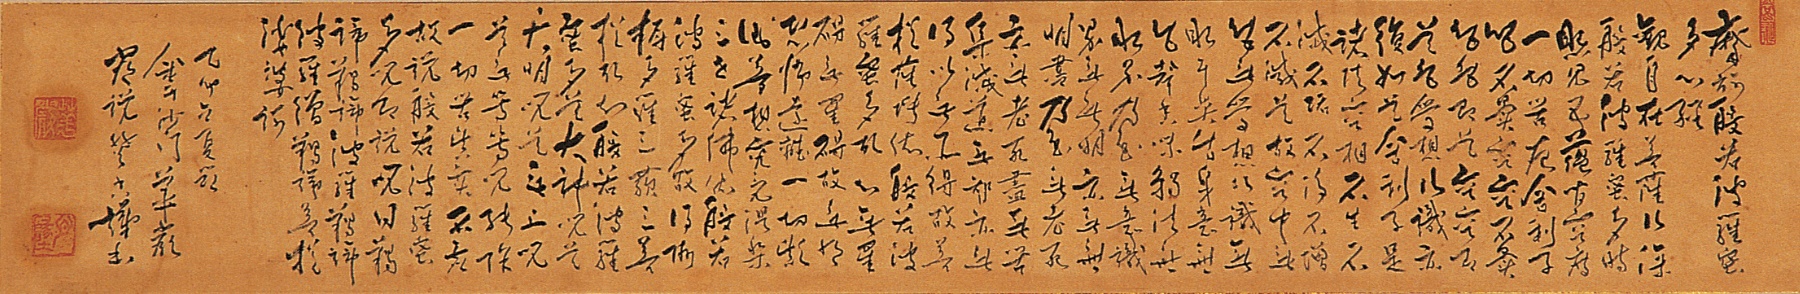 摩訶般若波羅蜜
多心經
觀自在菩薩行深
般若波羅蜜多時
照見五蘊皆空度
一切苦厄舍利子
色不異空空不異
色色即是空空即
是色受想行識亦
復如是舍利子是
諸法空相不生不
滅不垢不淨不增
不減是故空中無
色無受想行識無
眼耳鼻舌身意無
色聲香味觸法無
眼界乃至無意識
界無無明亦無無
明盡乃至無老死
亦無老死盡無苦
集滅道無智亦無
得以無所得故菩
提薩埵依般若波
羅蜜多故心無罣
礙無罣礙故無有
恐怖遠離一切顛
倒夢想究竟涅槃
三世諸佛依般若
波羅蜜多故得阿
耨多羅三藐三菩
提故知般若波羅
蜜多是大神咒是
大明咒是無上咒
是無等等咒能除
一切苦真實不虛
故說般若波羅蜜
多咒即說咒曰揭
諦揭諦波羅揭諦
波羅僧揭諦菩提
薩婆訶
乙卯夏
沙門